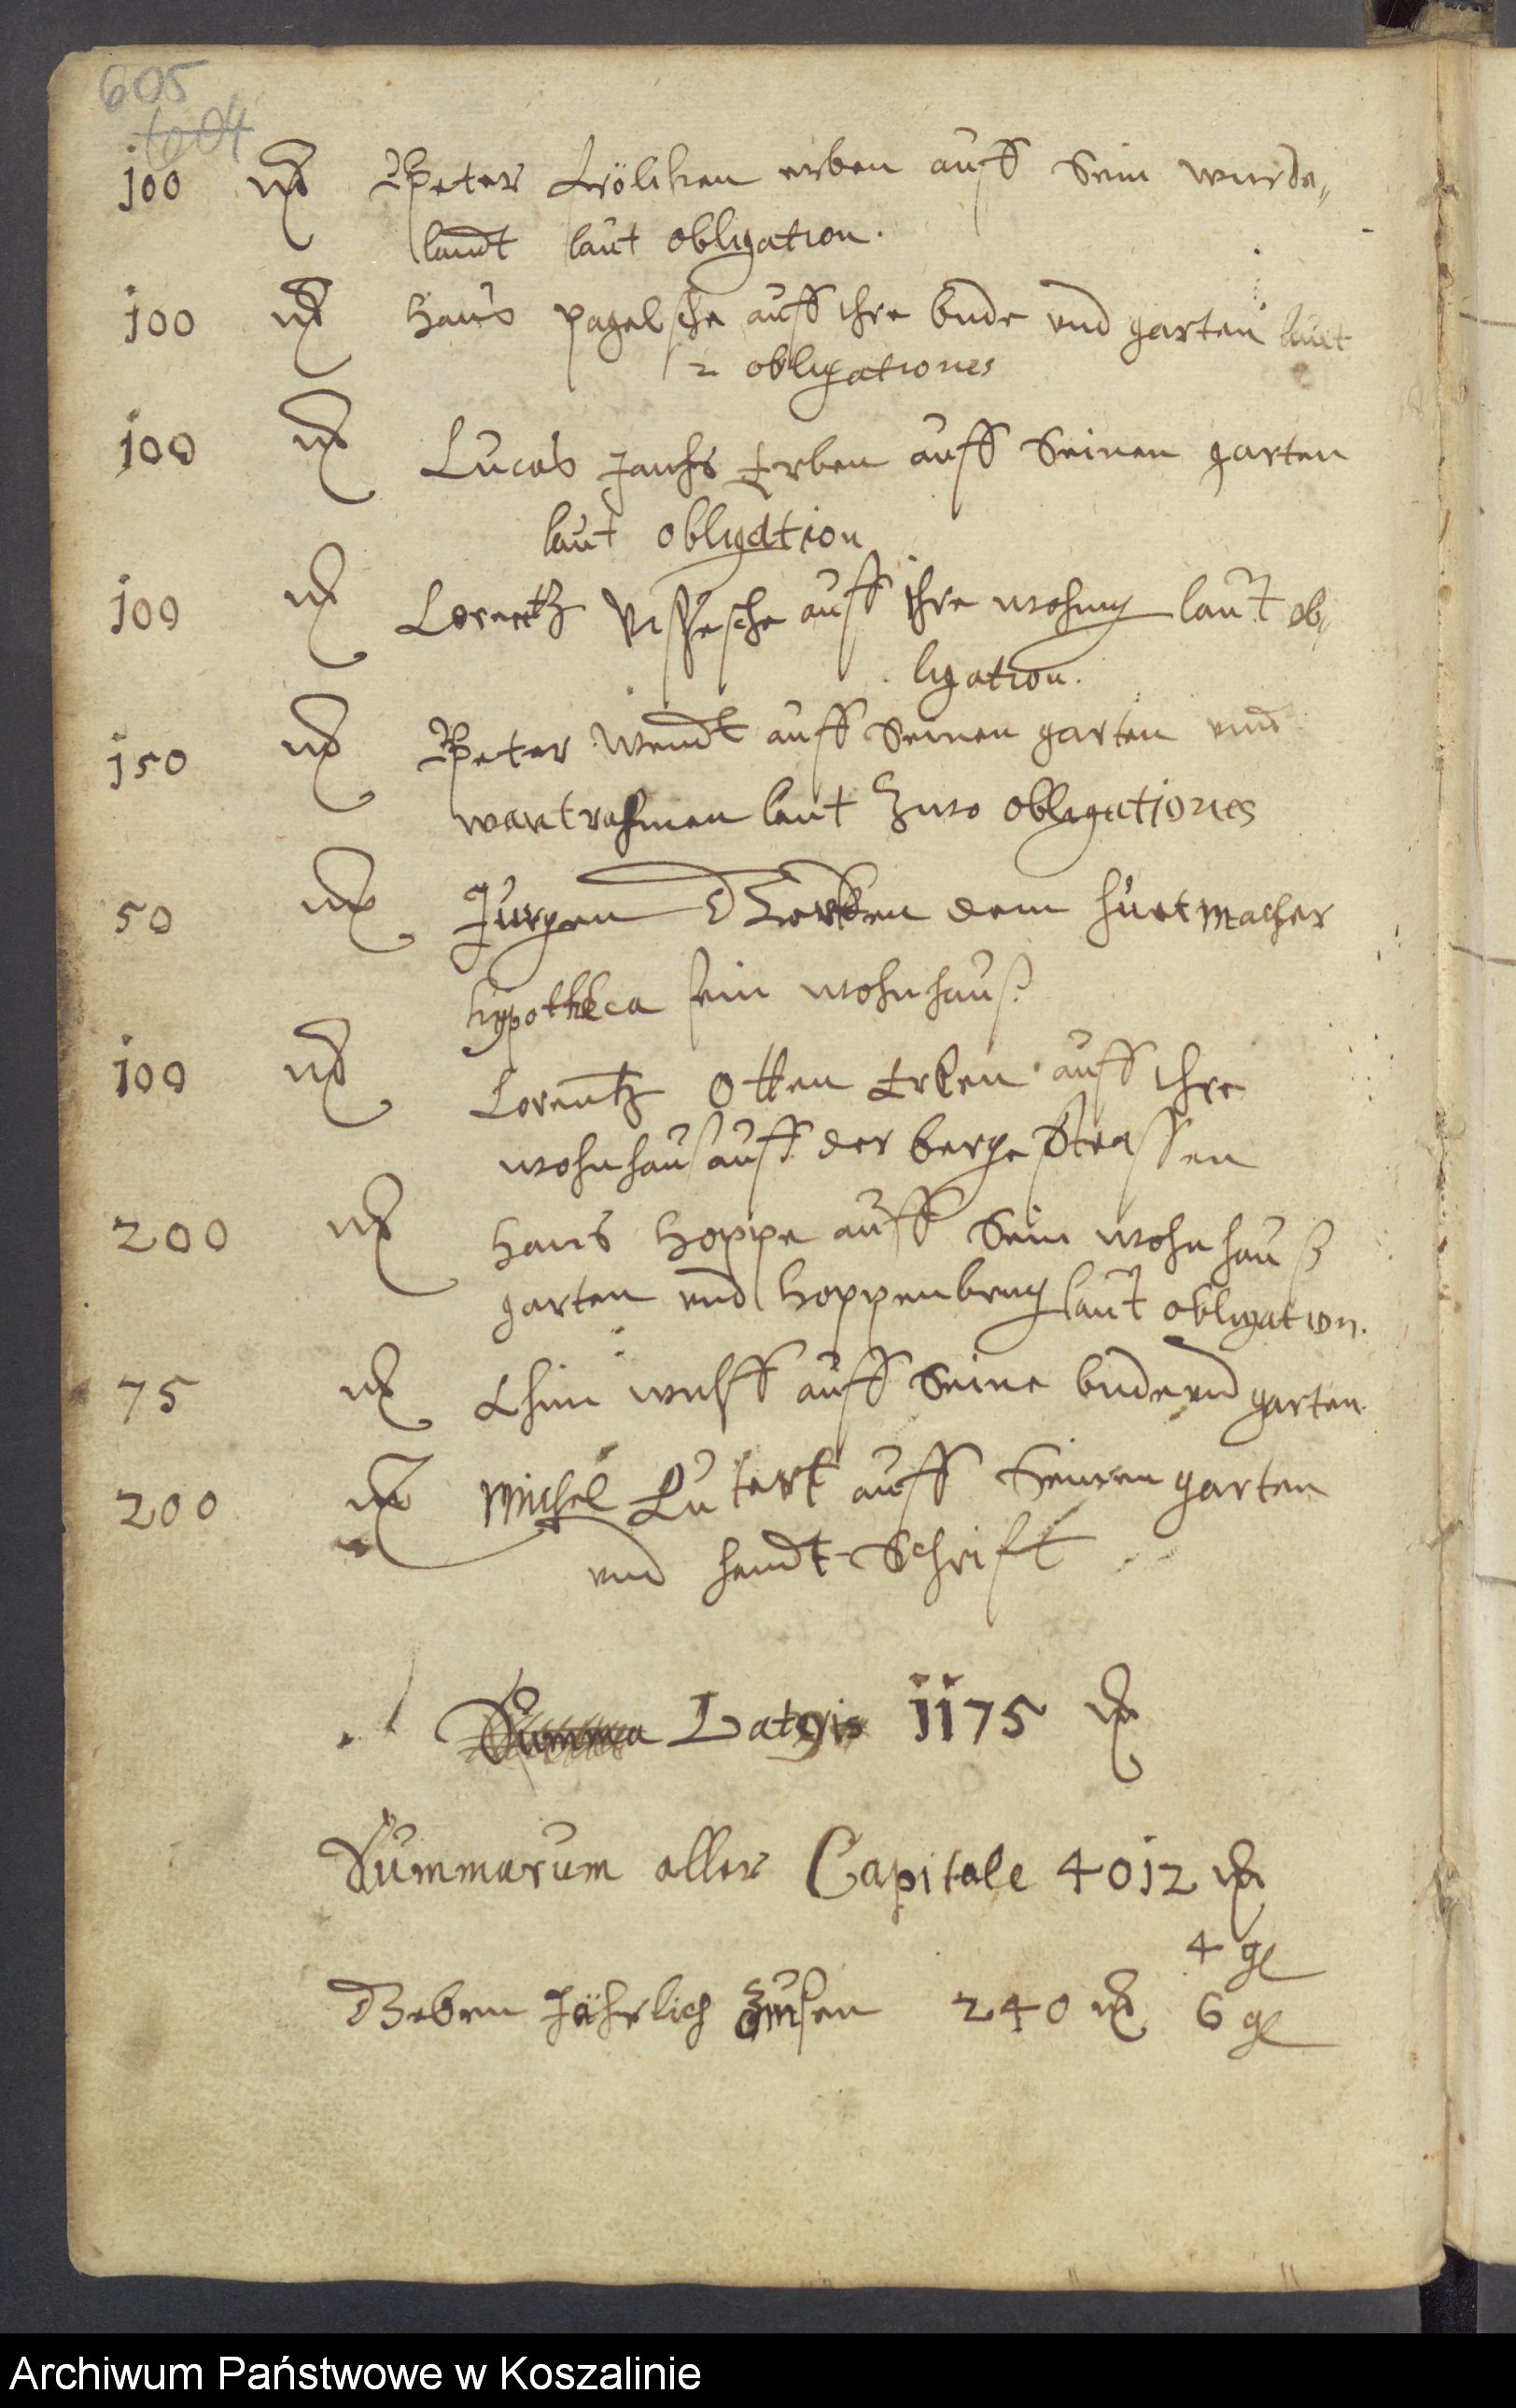 605
604
100 mk Peter Frölichen erben auff Sein wurde„
landt laut obligation.
100 mk Hans pagelsche auff ihre bude vnd garten laut
2 obligationes
100 mk Lucas Janhs Erben auff Seinen garten
laut obligation
100 mk Lorentz auff ihre wohnung laut ob„
ligation.
150 mk Peter Wendt auff Seinen garten vnd
wantrahmen laut Zwo obligationes
50 mk Jürgen dem huetmacher
hypotheca sein wohnhauß
100 mk Lorentz Otten Erben auff ihre
wohnhauß auff der berge Strassen
200 mk Hans Hoppe auff Sein wohnhauß
garten vnd Hoppenbrug laut obligation.
75 mk Chim wulff auff Seine bude vnd garten.
200 mk Michel Lutert auff Seinen garten
vnd handt-Schrifft
Summa Latgis 1175 mk
Summarum aller Capitale 4012 mk
4 gl
Geben Jährlich Zinsen 240 mk 6 gl
Archiwum Państwowe w Koszalinie